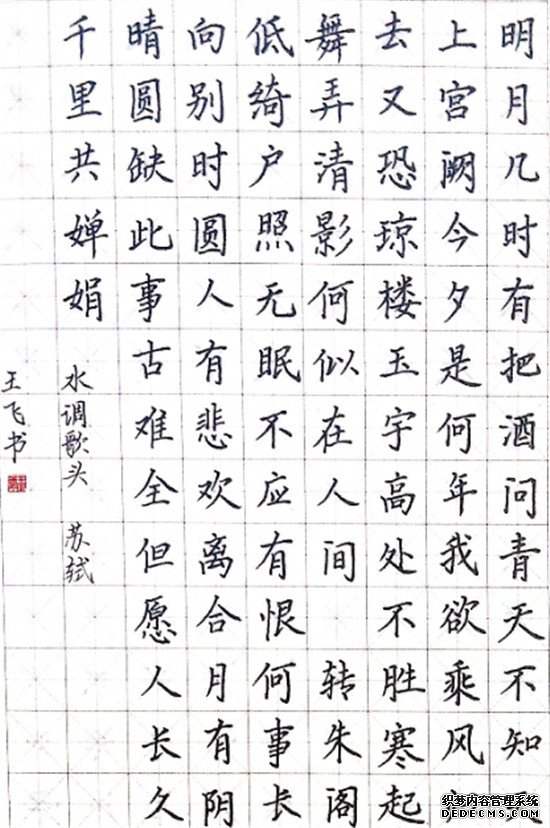 明月几时有把酒问青天不知
上宫阙今夕是何年我欲乘风
去又恐琼楼玉宇高处不胜寒起
舞弄清影何似在人间 转朱阁
低绮户照无眠不应有恨何事长
向别时圆人有悲欢离合月有阴
晴圆缺此事古难全但愿人长久
千里共婵娟
水调歌头 苏轼
王飞书
织梦内容管理系统
DEDECMS.COM